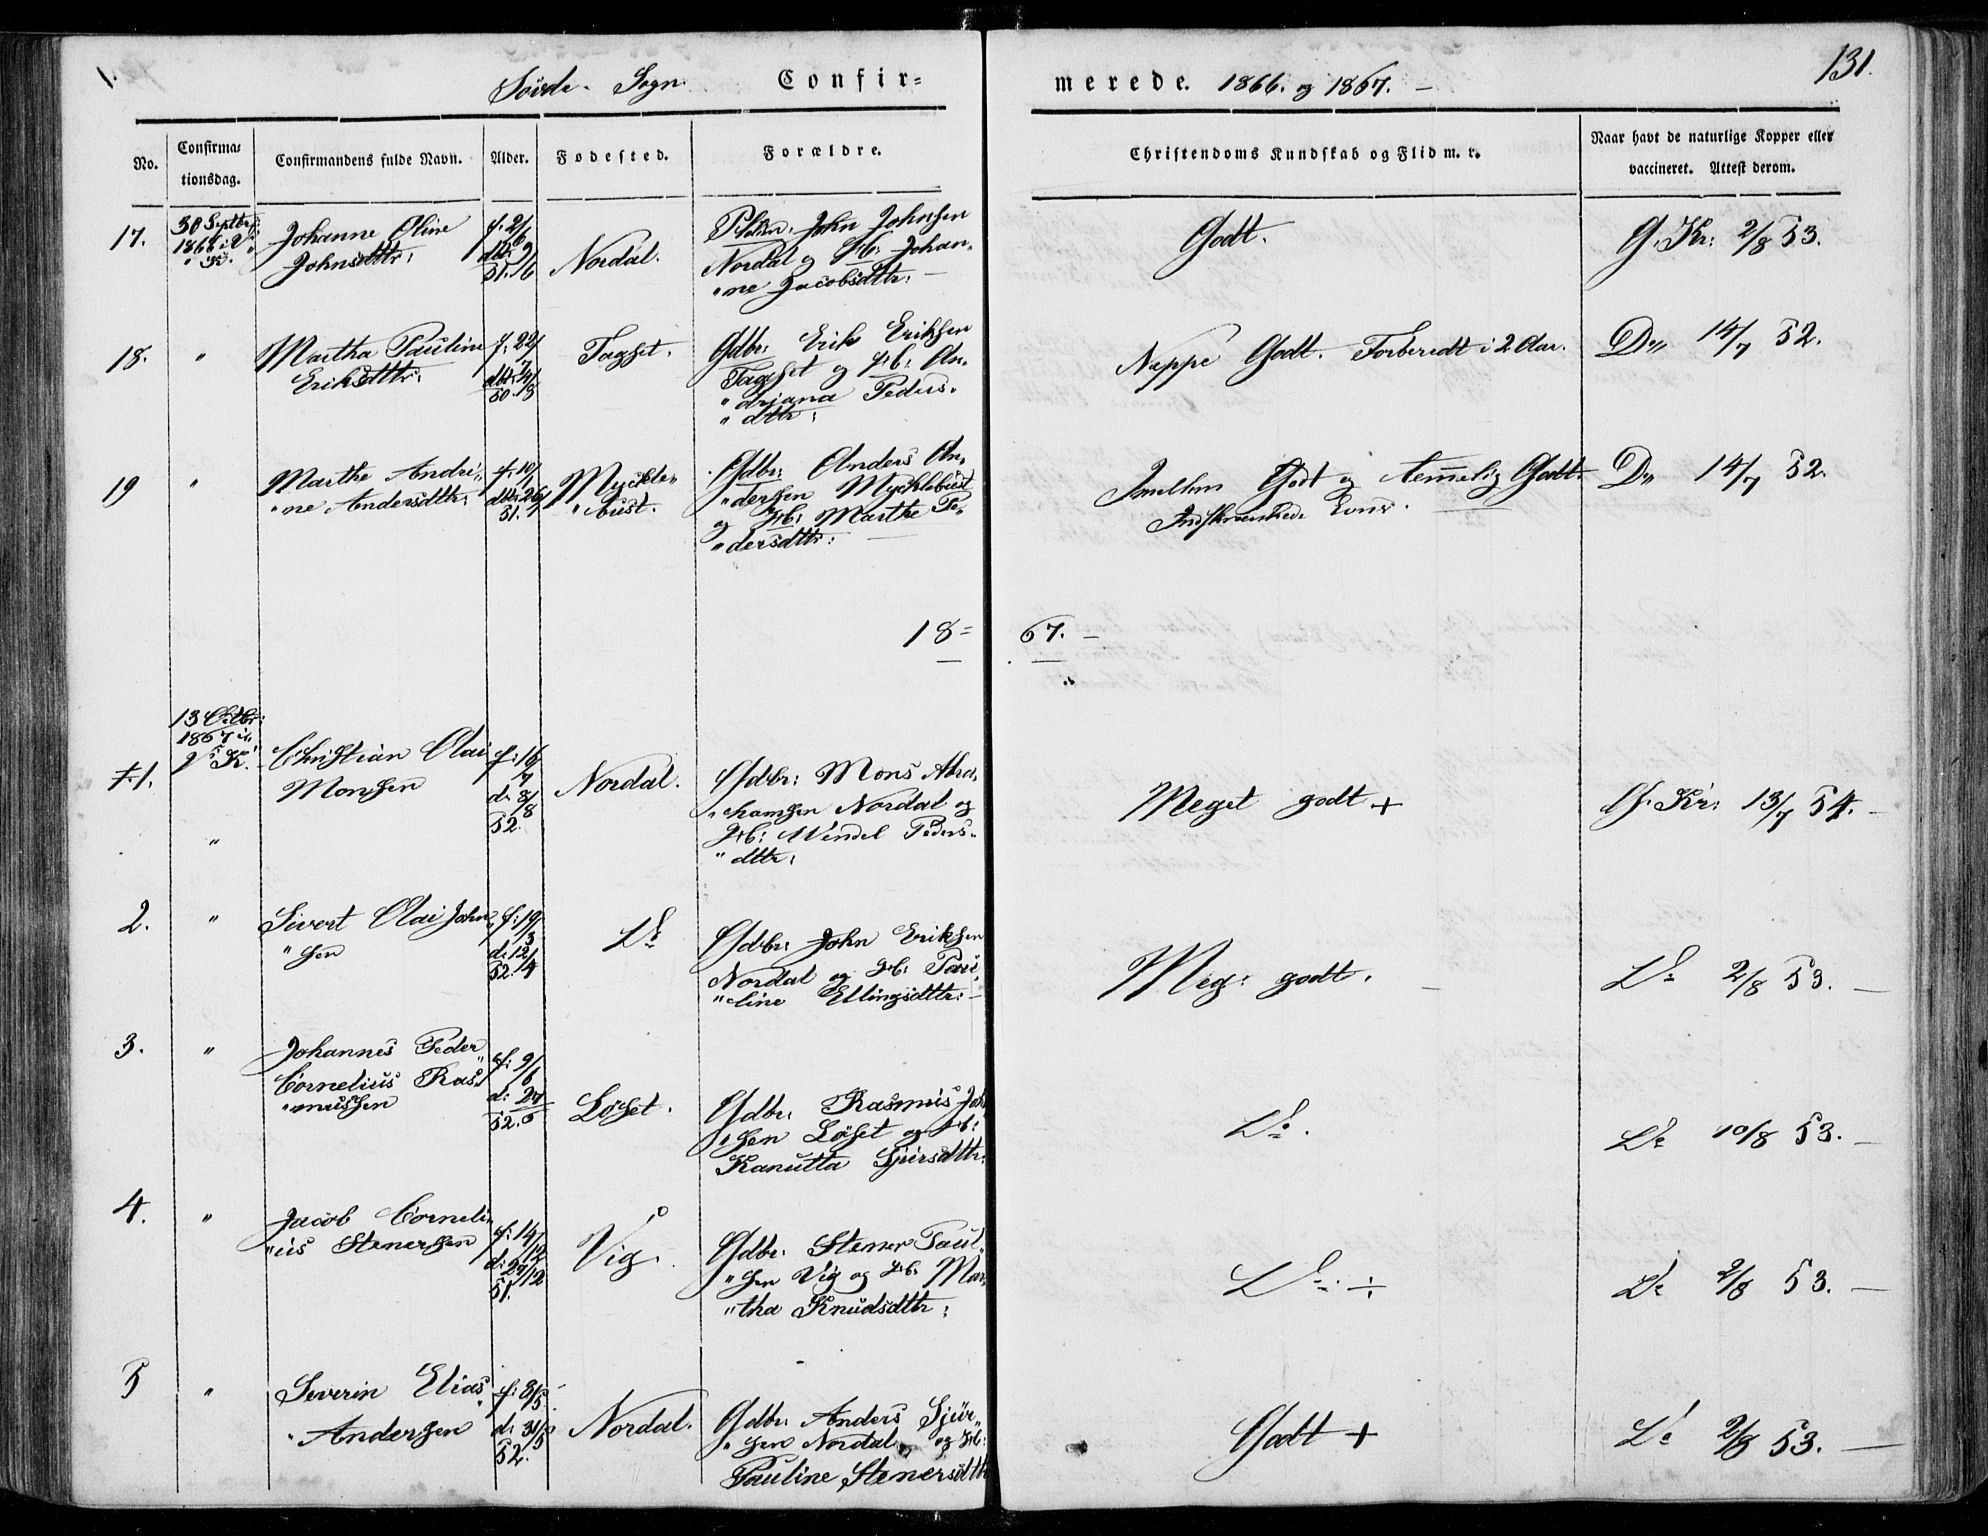 Sørde Sogn. Confir=
merede. 1866. og 1867. —
131.
No. Confirma=tionsdag. Confirmandens fulde Navn. Alder. Fødested. Forældre.
Christendoms Kundskab og Flid m. v.
Naar havt de naturlige Kopper eller vaccineret. Attest derom.
17. 30 Septbr: 1866 i V. K. Johanne Oline Johnsdttr: f. 2/6 dbt. 9/6 51. Nordal. John Johnsen Nordal og Hb: Johan„ „ne Jacobsdttr: — Godt. G. Kr: 2/8 53.
18. „ Martha Pauline Eriksdttr: f. 22/ 50. Tagset. Gdbr: Erik Eriksen Tagset og Hb: An„ „driana Peders„ „dttr: Neppe Godt. Forberedt i 2 Aar. Do 14/7 52.
19 „ Marthe Andri„ „ne Andersdttr: f. 10/ dbt: 26/ 51. Myckle„ „bust. Gdbr: Anders An„ „dersen Mycklebust og Hb: Marthe Pe„ „dersdttr: — Imellem Godt og temmelig Godt. Indskrænkede Evner. Do 14/7 52.
18= 67. —
+.1. 13 Octbr: 1867 i V. K. Christian Olai Monsen f: 16/7 d. 8/8 52. Nordal. Gdbr: Mons Abra„ „hamsen Nordal og Hb: Wendel Peders„ „dttr: Meget godt + G. Kr: 13/7 54. —
2. „ Sivert Olai John„ „sen f: 19/3 d. 12/4 52. Do Gdbr: John Eriksen Nordal og Hb: Pau„ „line Ellingsdttr: — Meg: godt. — Do 2/8 53. —
3. „ Johannes Peder Cornelius Ras„ „mussen f: 9/6 d: 27/6 52. Løset. Gdbr: Rasmus Joh „sen Løset og Hb: Kanutta Sjursdttr: Do. Do 10/8 53. —
4. „ Jacob Corneli„ „us Stenersen f: 14/12 d. 27/12 51. Vig. Gdbr: Stener Paul„ „sen Vig og Hb: Mar„ „tha Knudsdttr: Do. ÷ Do 2/8 53. —
5 „ Severin Elias Andersen f: 8/5 d. 31/5 52. Nordal. Gdbr: Anders Sjur„ „sen Nordal og Hb: Pauline Stenersdttr Godt + Do 2/8 53. —